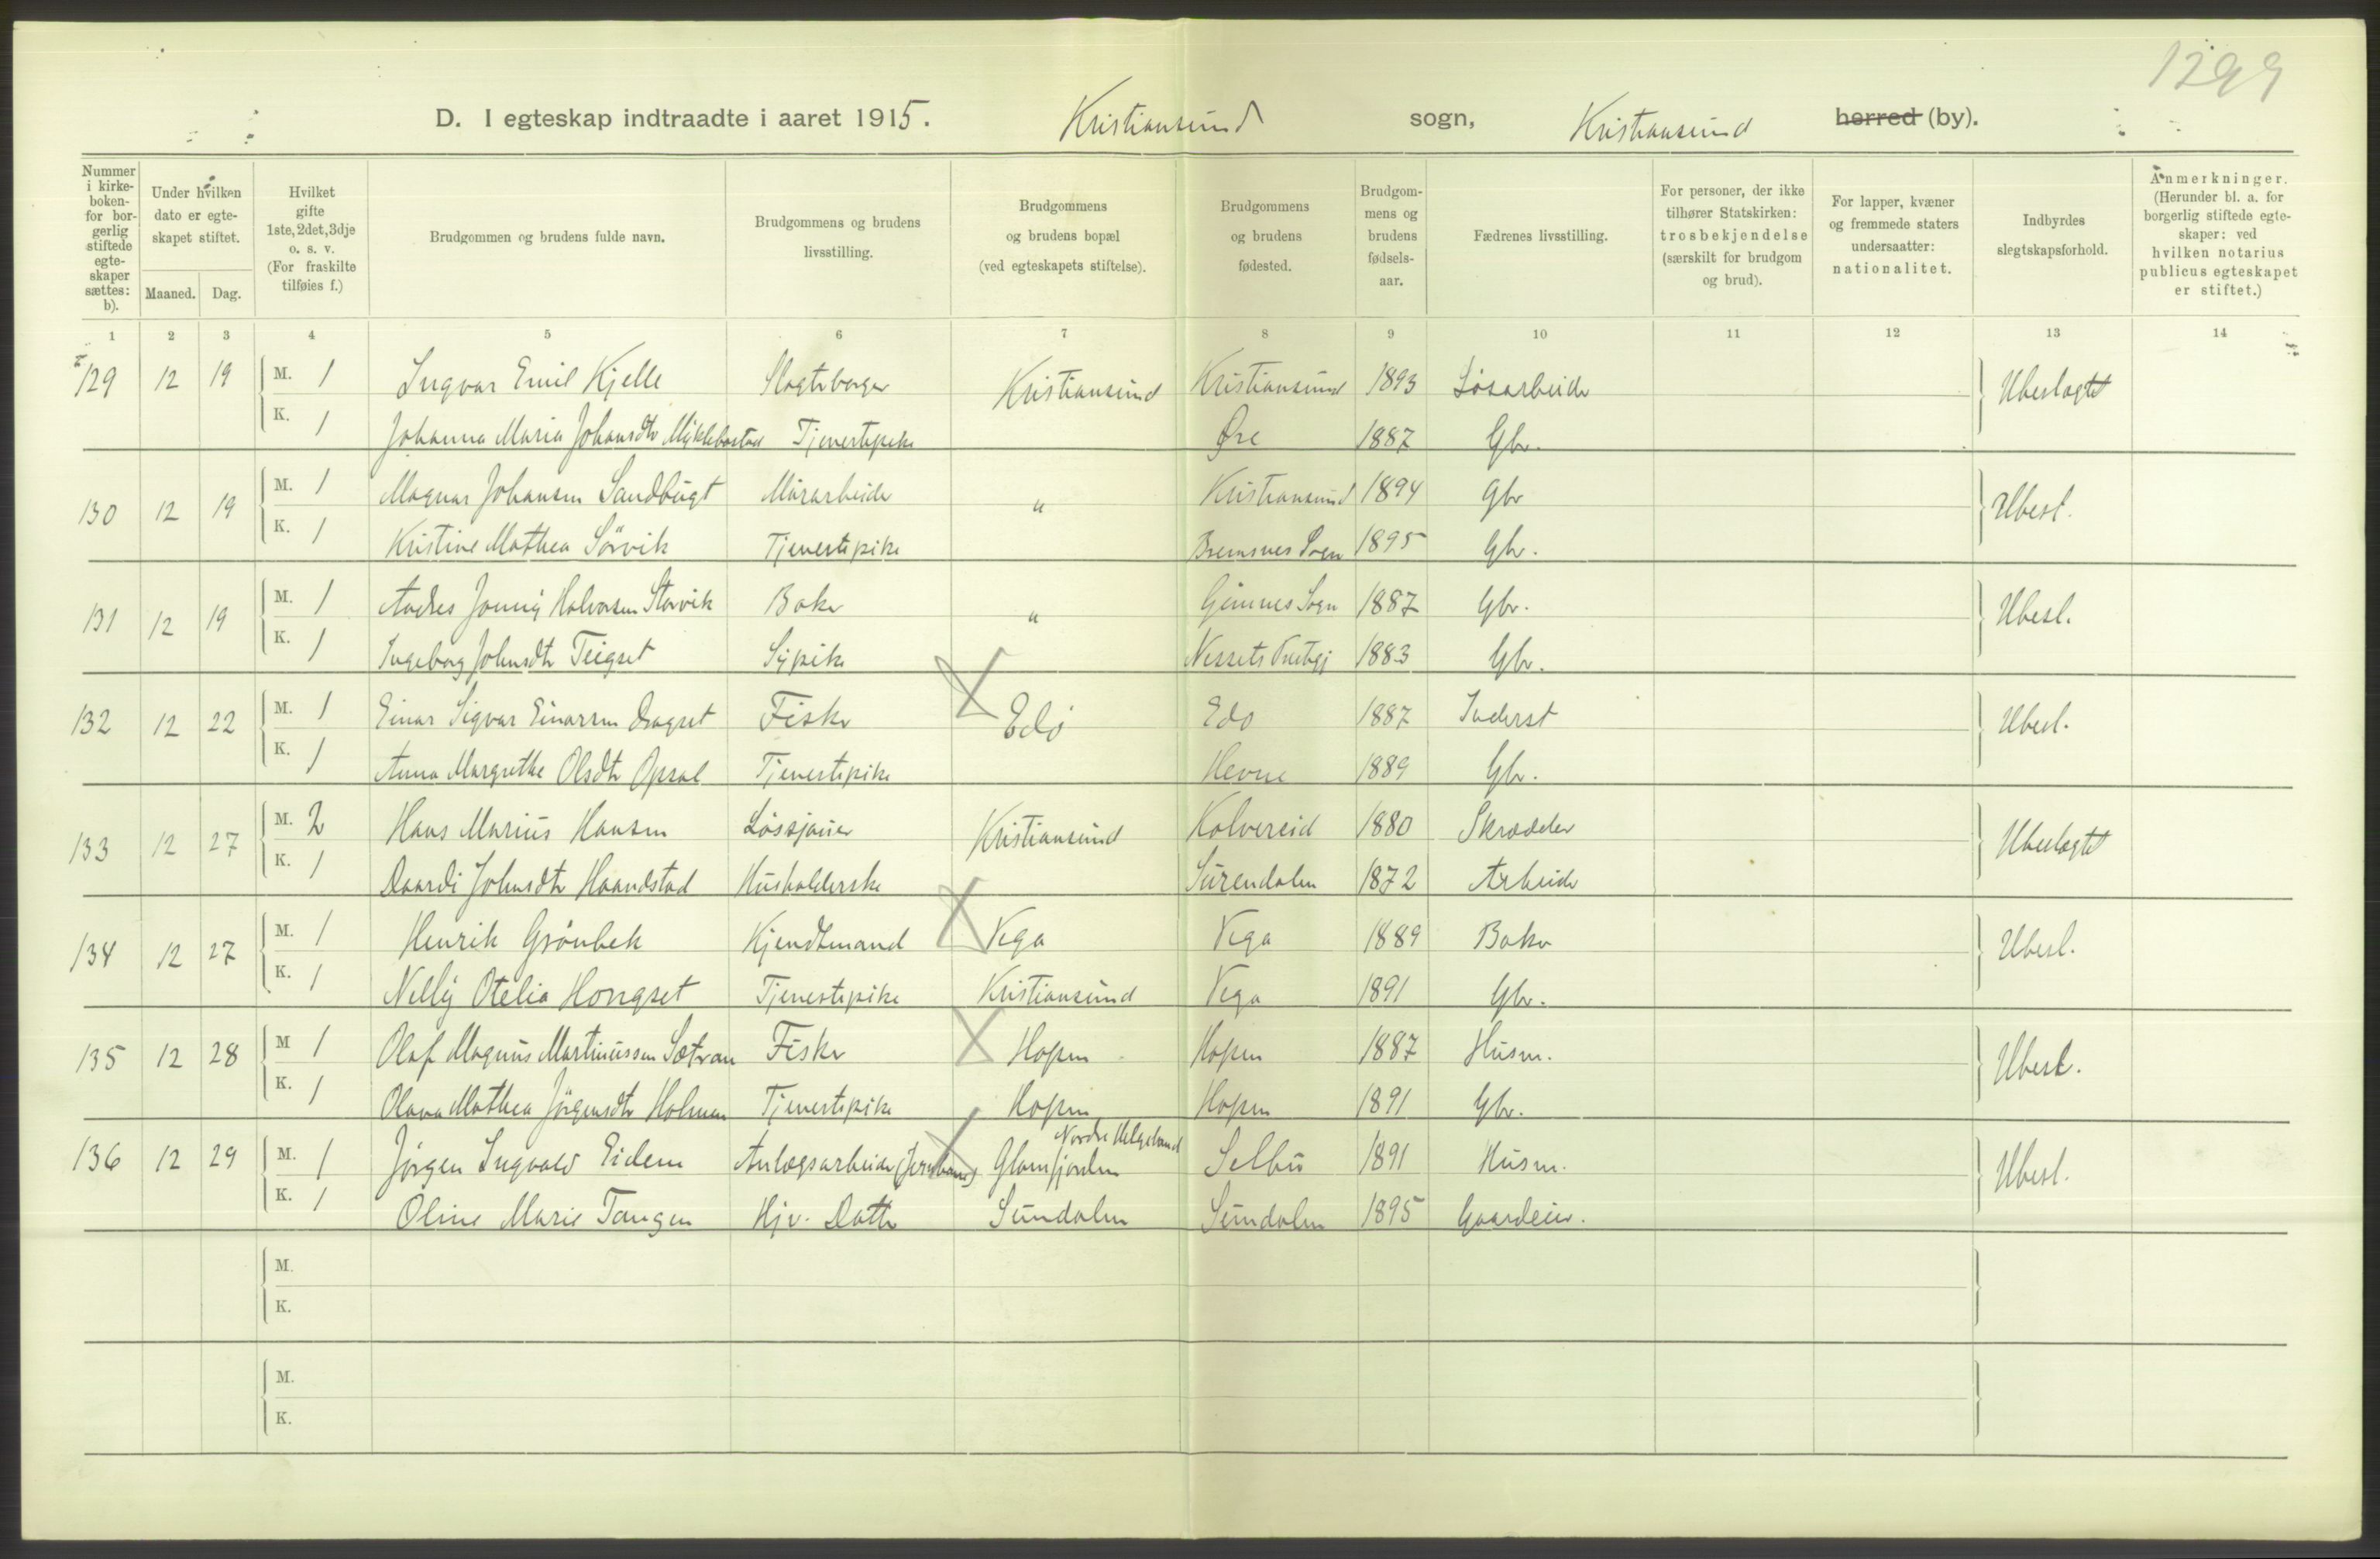 1299
D. I egteskap indtraadte i aaret 1915. Kristiansund sogn, Kristiansund herred (by).
Nummer i kirkeboken- for borgerlig stiftede egteskaper sættes: b).
Under hvilken dato er egteskapet stiftet.
Maaned. Dag.
Hvilket gifte 1ste, 2det, 3dje o. s. v. (For fraskilte tilføies f.)
Brudgommen og brudens fulde navn.
Brudgommens og brudens livsstilling.
Brudgommens og brudens bopæl (ved egteskapets stiftelse).
Brudgommens og brudens fødested.
Brudgommens og brudens fødsels-aar.
Fædrenes livsstilling.
For personer, der ikke tilhører Statskirken: trosbekjendelse (særskilt for brudgom og brud).
For lapper, kvæner og fremmede staters undersaatter: nationalitet.
Indbyrdes slegtskapsforhold.
Anmerkninger. (Herunder bl. a. for borgerlig stiftede egteskaper: ved hvilken notarius publicus egteskapet er stiftet.)
1 2 3 4 5 6 7 8 9 10 11 12 13 14
129 12 19 M. 1 Ingvar Emil Kjelle Kristiansund Kristiansund 1893 Løsarbeider Ubeslagtet
K. 1 Johanna Maria Johansdtr Myklebostad Tjenestepike Øre 1887 Gbr.
130 12 19 M. 1 Magnar Johansen Sandbugt Murarbeider " Kristiansund 1894 Gbr Ubesl.
K. 1 Kristine Mathea Sørvik Tjenestepike Bremsnes Sogn 1895 Gbr.
131 12 19 M. 1 Halvorsen Storvik Baker " Gjemnes Sogn 1887 Gbr. Ubesl.
K. 1 Ingeborg Johnsdtr Teigset Sypike Nessets 1883 Gbr.
132 12 22 M. 1 Einar Sigvar Einarsen Dragset Fisker Edø Edø 1887 Inderst Ubesl.
K. 1 Anna Margrethe Olsdtr Opsal Tjenestepike Hevne 1889 Gbr.
133 12 27 M. 2 Hans Marius Hansen Løssjauer Kristiansund Kolvereid 1880 Skrædder Ubeslagtet
K. 1 Johnsdtr Haandstad Husholderske Surendalen 1872 Arbeider
134 12 27 M. 1 Henrik Grönbek Kjendtmand Vega Vega 1889 Baker Ubesl.
K. 1 Nelly Otelia Hongset Tjenestepike Kristiansund Vega 1891 Gbr.
135 12 28 M 1 Olaf Magnus Martinussen Sætran Fisker Hopen Hopen 1887 Husm. Ubesl.
K. 1 Olava Mathea Jörgensdtr Holman Tjenestepike Hopen Hopen 1891 Gbr.
136 12 29 M. 1 Jörgen Ingvald Eidem Anlægsarbeider (Jernbane) Nordre Helgeland Glomfjorden Selbu 1891 Husm. Ubesl.
K. 1 Oline Marie Tangen Hjv. Datter Sundalen Sundalen 1895 Gaardeier.
M.
K.
M.
K.